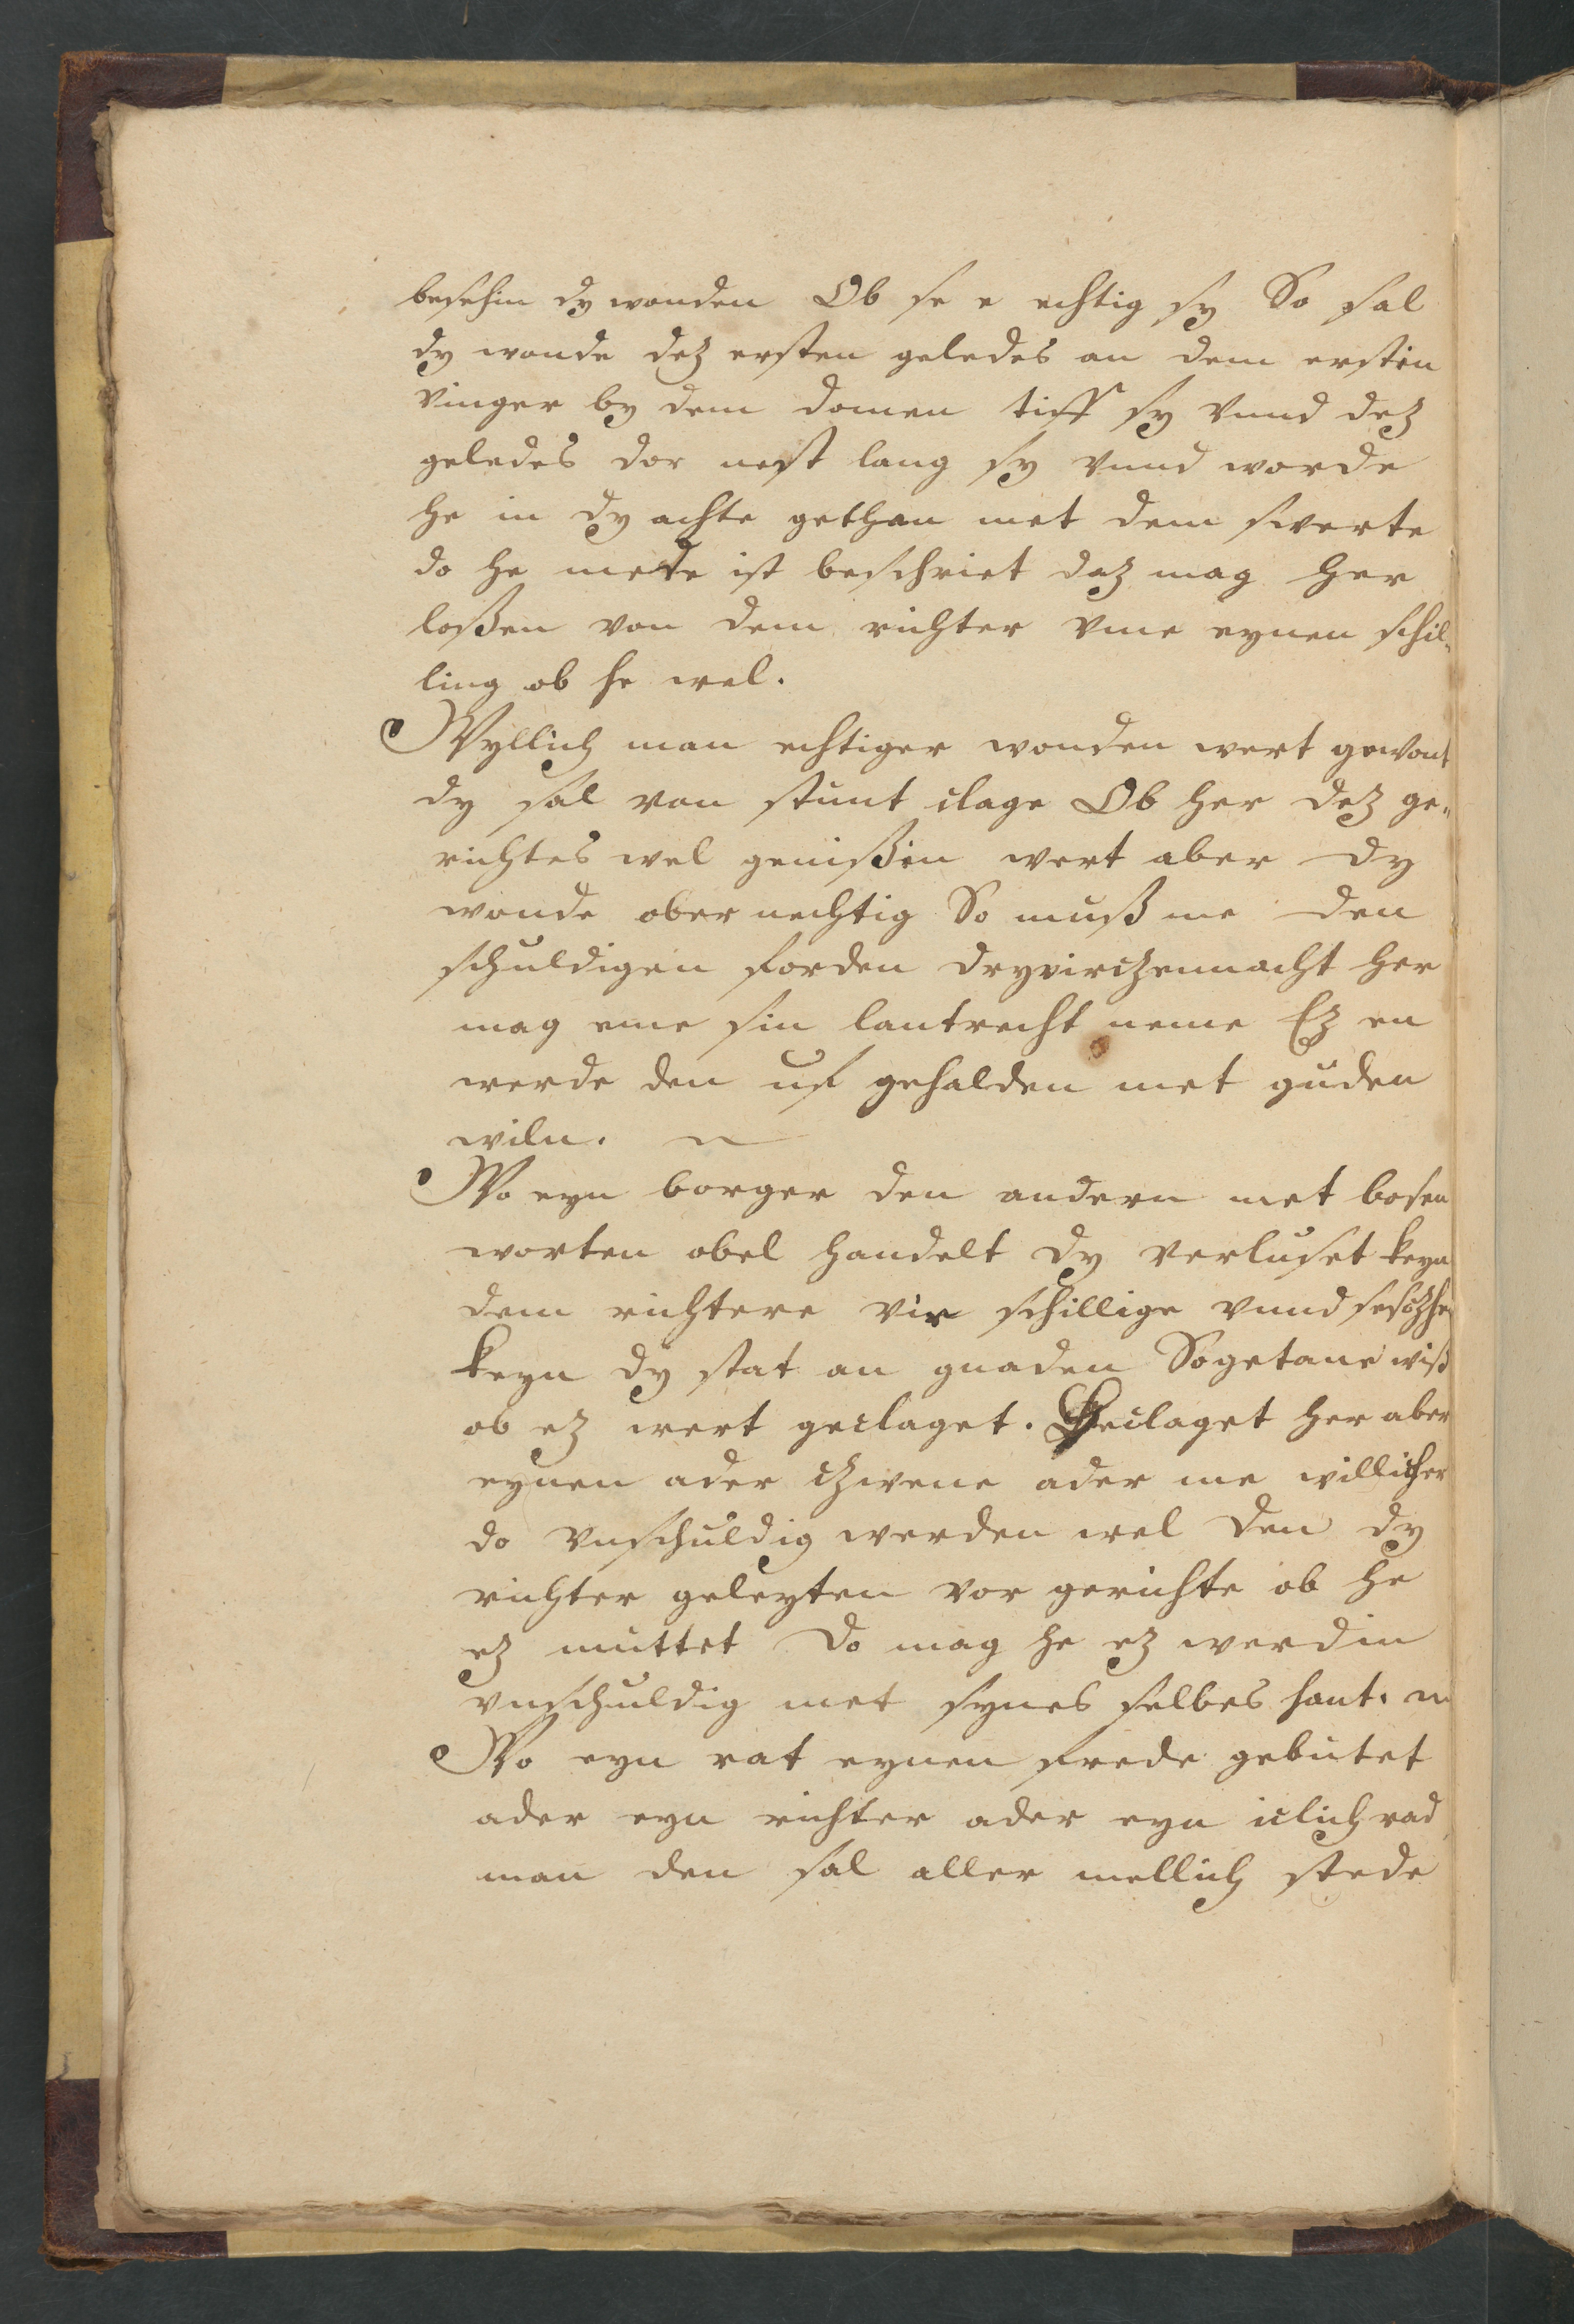 besehin dy wonden Ob se e echtig sy So sal
dy wonde dez ersten geledes an dem erstin
vinger by dem domen tiff sy vnnd dez
geledes dor nest lang sy vnnd worde
he in dy achte gethan met dem swerte
do he mete ist beschriet daz mag her
loßen von dem richter vme eynen schil„
ling ob he wel.
Wyllich man echtiger wonden wert gewont
dy sal von stunt clage Ob her dez ge„
richtes wel genißin wert aber dy
wonde ober nechtig So muß me den
schuldigen forden dryvirczennacht her
mag eme sin lantrecht neme Ez en
werde den uf gehalden met guden
wiln.
Wo eyn borger den andern met bosen
worten obel handelt dy verluset keyn
dem richtere vir schillige vnnd
keyn dy stat an gnaden Sogetane wiß
ob ez wert geclaget. Geclaget her aber
eynen ader czwene ader me willicher
do vnschuldig werden wel den dy
richter geleyten vor gerichte ob he
ez muttet Do mag he ez werdin
vnschuldig met synes selbes hant.
Wo eyn rat eynen frede gebutet
ader eyn richter ader eyn iclich rad
man den sal aller mellich stede